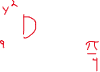 y²
D
9
π/4